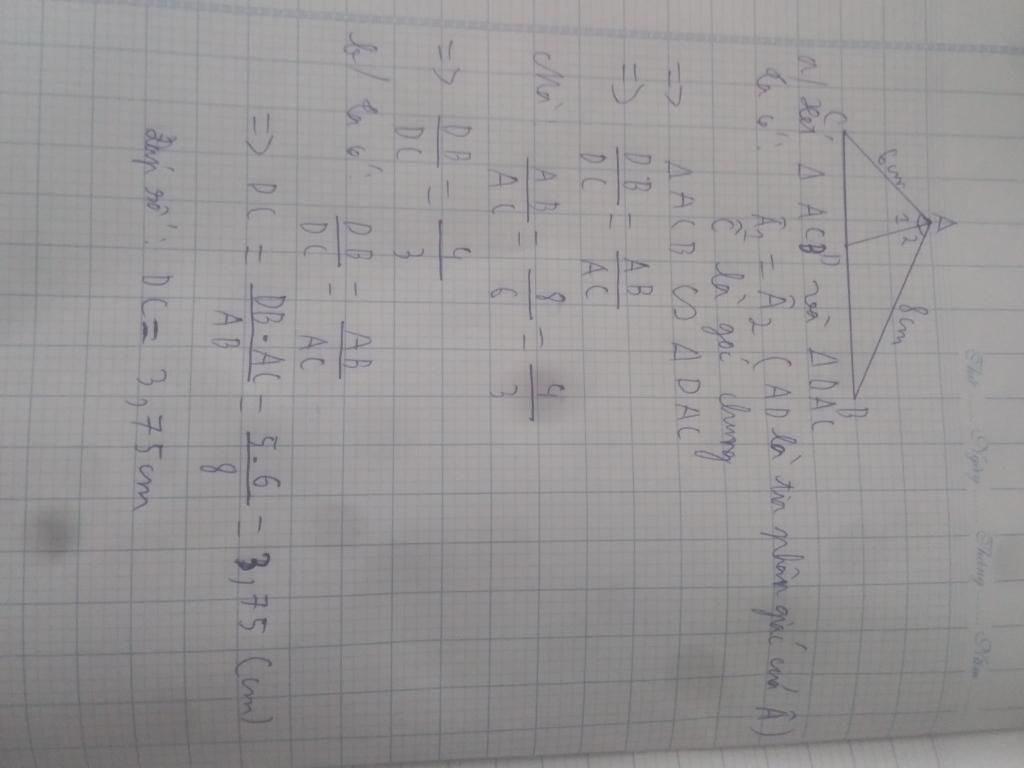 Thứ Ngày Tháng Năm
A
1 2
6cm 8cm
C D B
a/ Xét Δ ACB và Δ DAC
Ta có: Â1 = Â2 (AD là tia phân giác của Â)
Ĉ là góc chung
=> Δ ACB ∽ Δ DAC
=> DB/DC = AB/AC
Mà: AB/AC = 8/6 = 4/3
=> DB/DC = 4/3
b/ Ta có: DB/DC = AB/AC
=> DC = DB.AC/AB = 5.6/8 = 3,75 (cm)
Đáp số: DC = 3,75cm